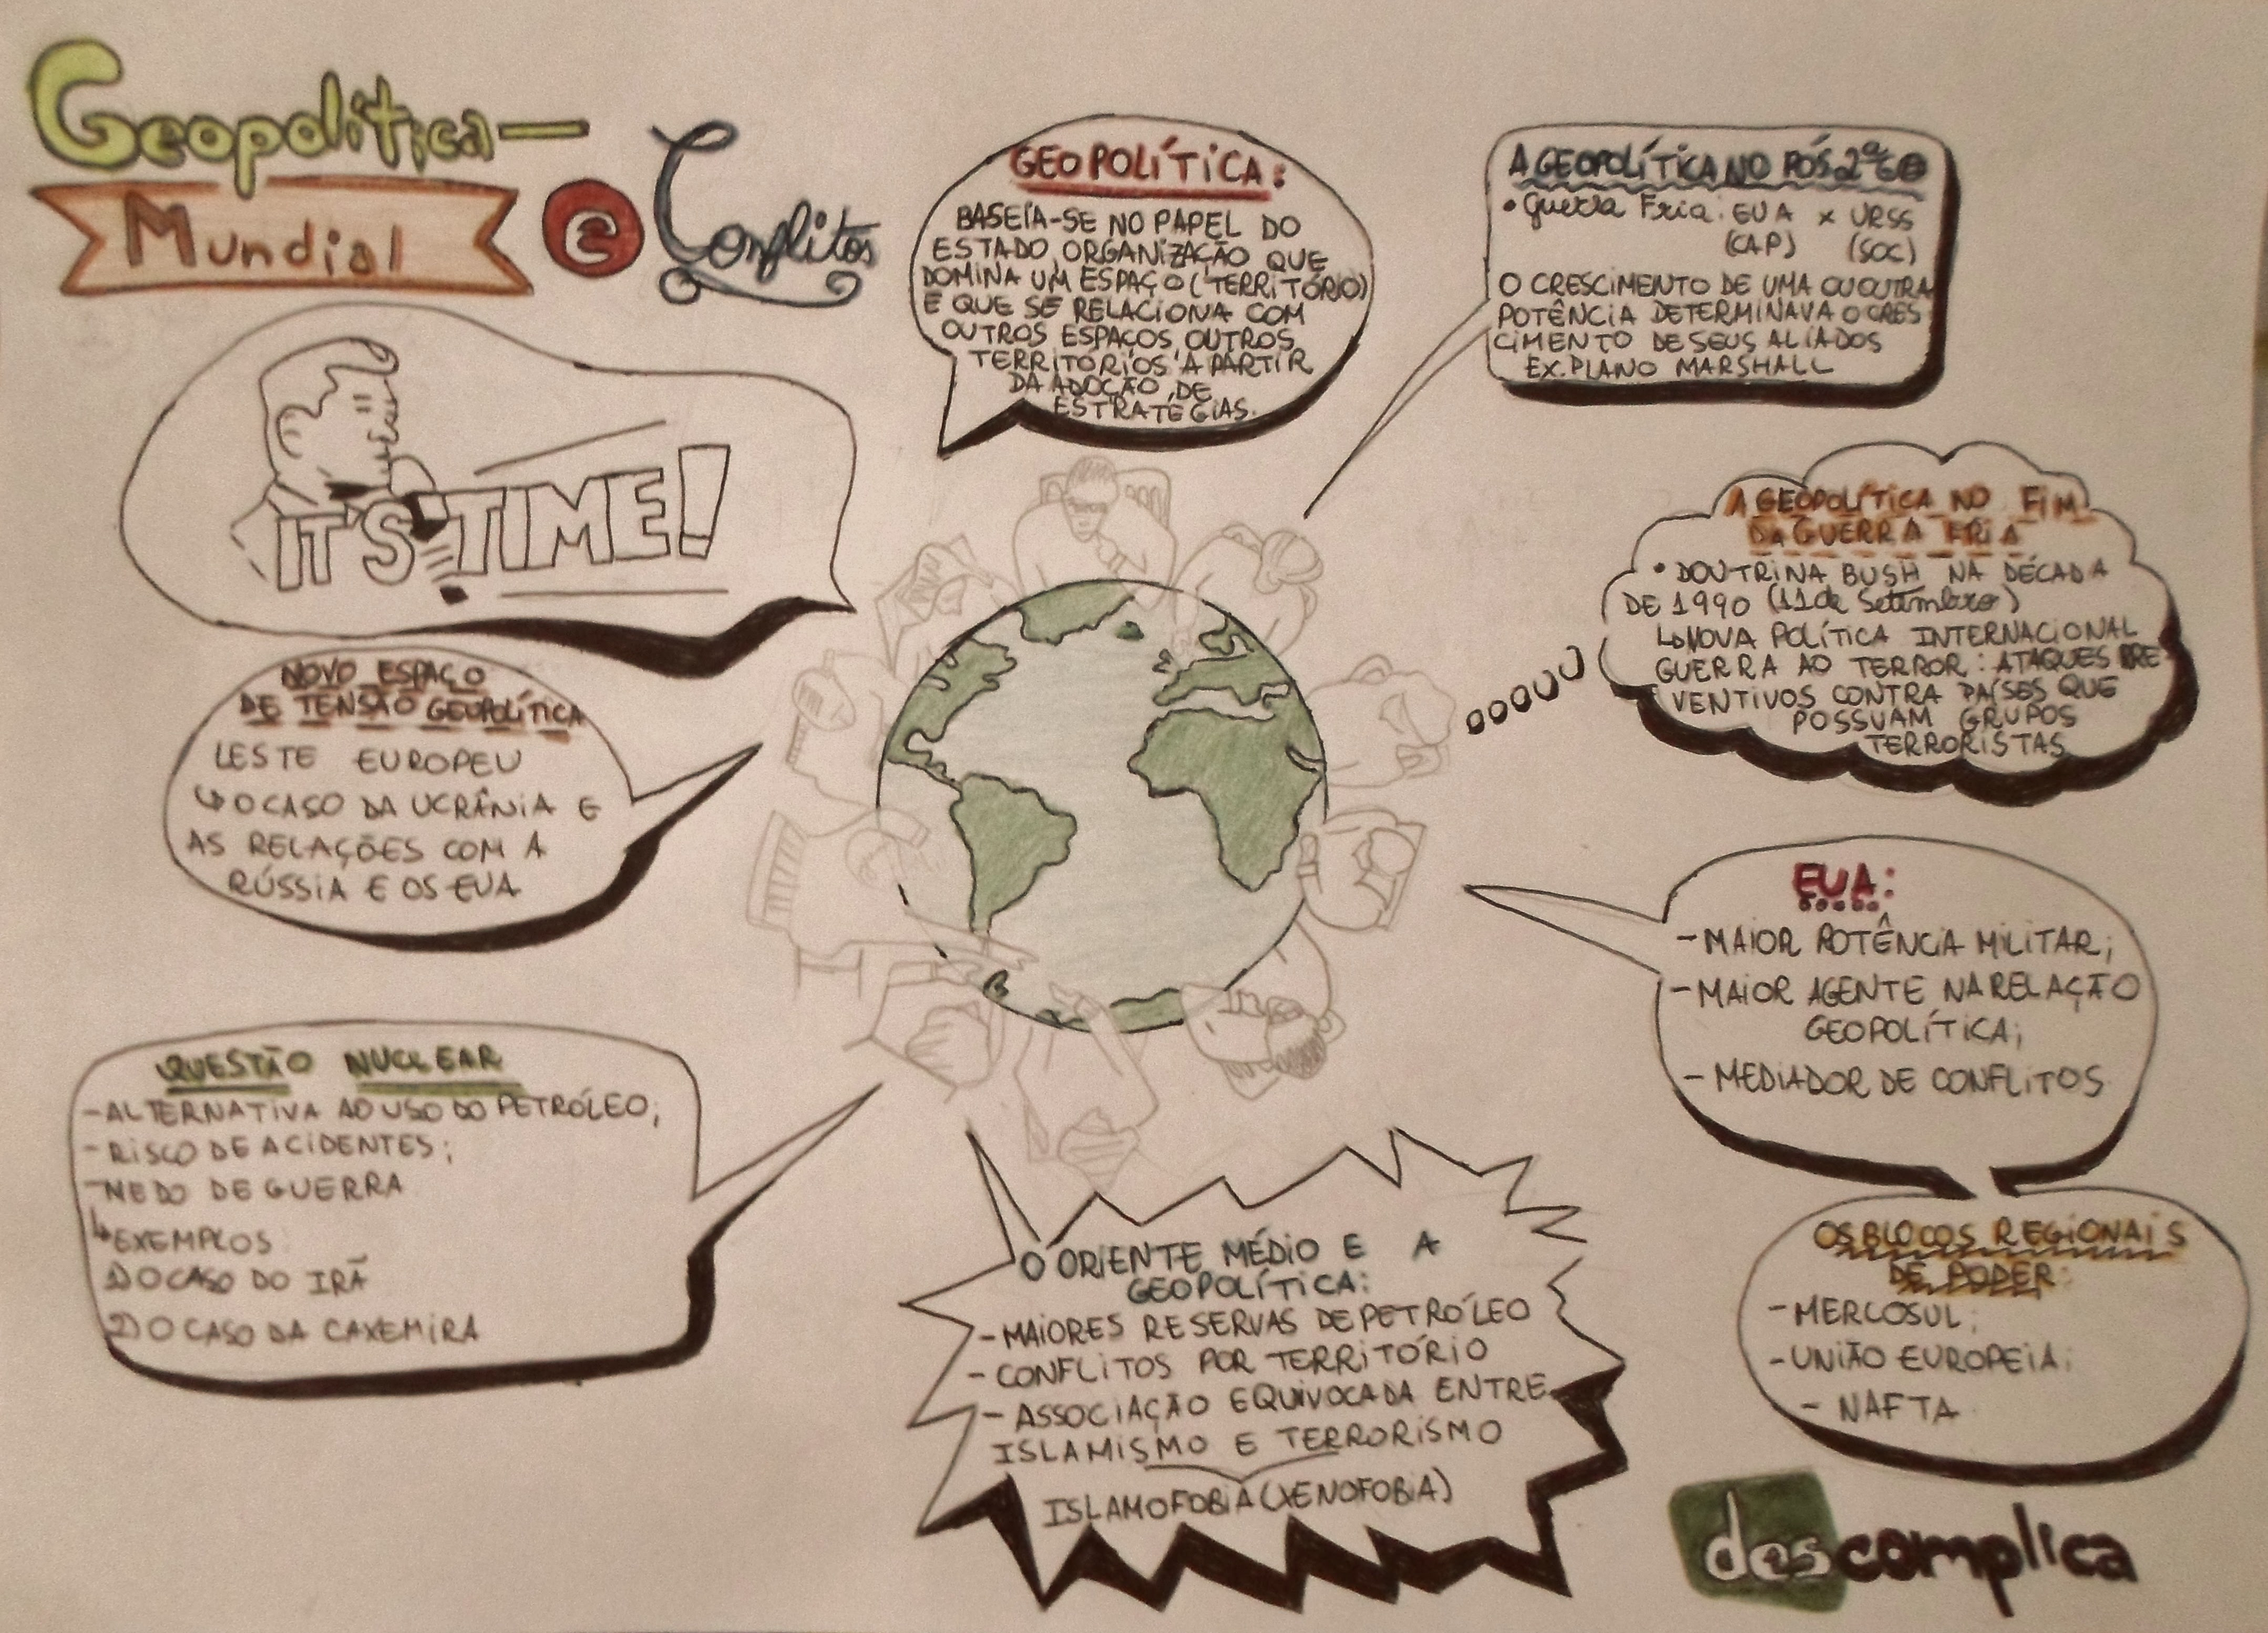 Geopolítica —
Mundial
e Conflitos
GEOPOLÍTICA:
BASEIA-SE NO PAPEL DO
ESTADO, ORGANIZAÇÃO QUE
DOMINA UM ESPAÇO (TERRITÓRIO)
E QUE SE RELACIONA COM
OUTROS ESPAÇOS, OUTROS
TERRITÓRIOS A PARTIR
DA ADOÇÃO DE
ESTRATÉGIAS.
A GEOPOLÍTICA NO PÓS 2ª G
• Guerra Fria: EUA x URSS
(CAP) (SOC)
O CRESCIMENTO DE UMA OU OUTRA
POTÊNCIA DETERMINAVA O CRES
CIMENTO DE SEUS ALIADOS
EX. PLANO MARSHALL
IT'S TIME!
A GEOPOLÍTICA NO FIM
DA GUERRA FRIA
• DOUTRINA BUSH NA DÉCADA
DE 1990 (11 de Setembro)
↳ NOVA POLÍTICA INTERNACIONAL
GUERRA AO TERROR: ATAQUES PRE
VENTIVOS CONTRA PAÍSES QUE
POSSUAM GRUPOS
TERRORISTAS
NOVO ESPAÇO
DE TENSÃO GEOPOLÍTICA
LESTE EUROPEU
↳ O CASO DA UCRÂNIA E
AS RELAÇÕES COM A
RÚSSIA E OS EUA
EUA:
- MAIOR POTÊNCIA MILITAR;
- MAIOR AGENTE NA RELAÇÃO
GEOPOLÍTICA;
- MEDIADOR DE CONFLITOS
QUESTÃO NUCLEAR
- ALTERNATIVA AO USO DO PETRÓLEO;
- RISCO DE ACIDENTES;
- MEDO DE GUERRA
↳ EXEMPLOS
1) O CASO DO IRÃ
2) O CASO DA CAXEMIRA
O ORIENTE MÉDIO E A
GEOPOLÍTICA:
- MAIORES RESERVAS DE PETRÓLEO
- CONFLITOS POR TERRITÓRIO
- ASSOCIAÇÃO EQUIVOCADA ENTRE
ISLAMISMO E TERRORISMO
ISLAMOFOBIA (XENOFOBIA)
OS BLOCOS REGIONAIS
DE PODER:
- MERCOSUL;
- UNIÃO EUROPEIA;
- NAFTA
descomplica